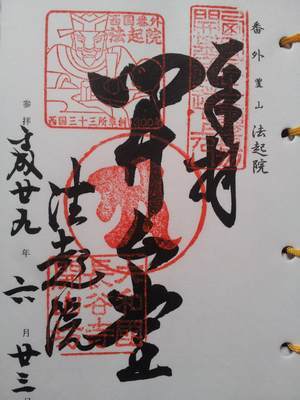 番外 豊山 法起院
奉拝
開山堂
法起院
参拝 平成廿九年六月廿三日
西国番外
法起院
西国三十三所草創1300年
大和國
長谷寺